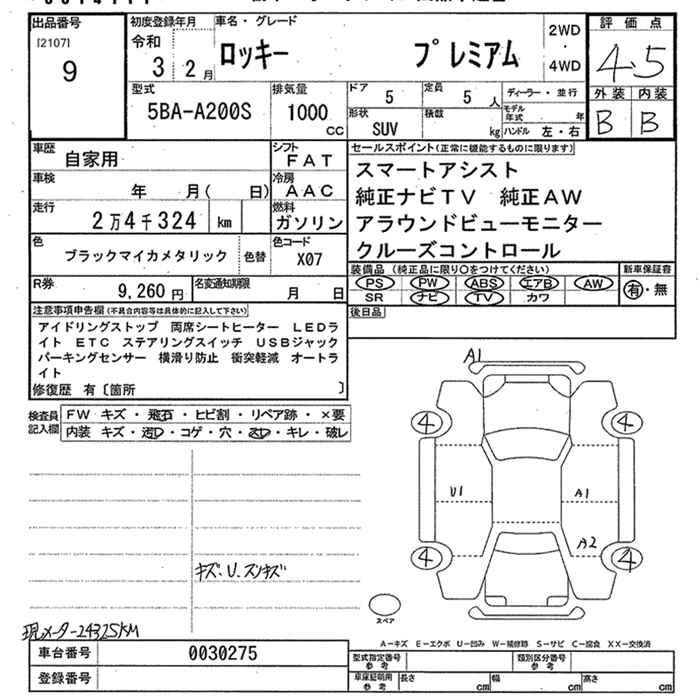 出品番号 初度登録年月 車名・グレード 2WD・4WD 評価点
[2107] 令和
9 3 2月 ロッキー プレミアム 4.5
型式 排気量 ドア 5 定員 5人 ディーラー・並行 外装 内装
5BA-A200S 1000 cc 形状 SUV 積載 kg モデル年式 年 B B
ハンドル 左・右
車歴 自家用 シフト FAT セールスポイント(正常に機能するものに限ります)
車検 年 月( 日) 冷房 AAC スマートアシスト
走行 2万4千324 km 燃料 ガソリン 純正ナビTV 純正AW
アラウンドビューモニター
色 ブラックマイカメタリック 色替 色コード X07 クルーズコントロール
装備品(純正品に限り○をつけてください) 新車保証書
R券 9,260円 名変通知期限 月 日 PS PW ABS エアB AW 有・無
SR ナビ TV カワ
注意事項申告欄(不具合内容等は具体的に記入して下さい) 後日品
アイドリングストップ 両席シートヒーター LEDラ
イト ETC ステアリングスイッチ USBジャック
パーキングセンサー 横滑り防止 衝突軽減 オートラ
イト
修復歴 有〔箇所 〕
検査員記入欄 FW キズ・飛石・ヒビ割・リペア跡・×要
内装 キズ・汚レ・コゲ・穴・・キレ・破レ
A1
4 4
U1 A1
A2
4 4
キズ・U・スリキズ
スペア
現メーター24325KM
A-キズ E-エクボ U-凹み W-補修跡 S-サビ C-腐食 XX-交換済
車台番号 0030275 型式指定番号 参考 類別区分番号 参考
登録番号 車庫証明用 参考 長さ cm 幅 cm 高さ cm